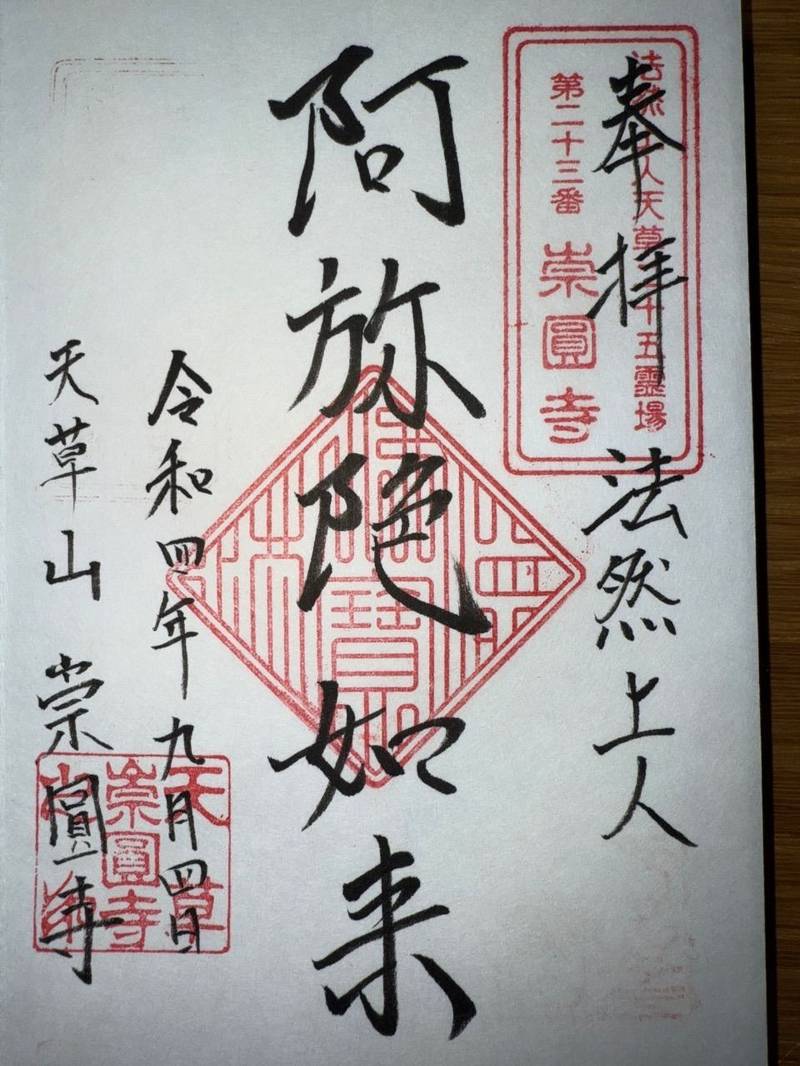 奉拝 法然上人
法然上人天草二十五霊場
第二十三番 崇圓寺
阿弥陀如来
令和四年九月四日
天草山 崇圓寺
天草
崇圓寺